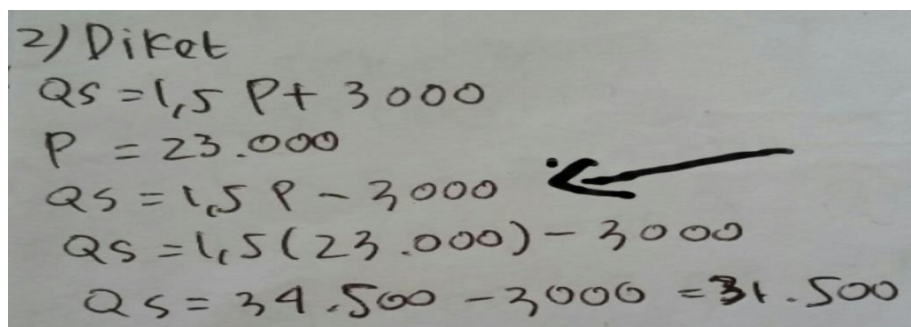 2) Diket
QS = 1,5 P + 3000
P = 23.000
QS = 1,5 P - 3000
QS = 1,5 (23.000) - 3000
QS = 34.500 - 3000 = 31.500